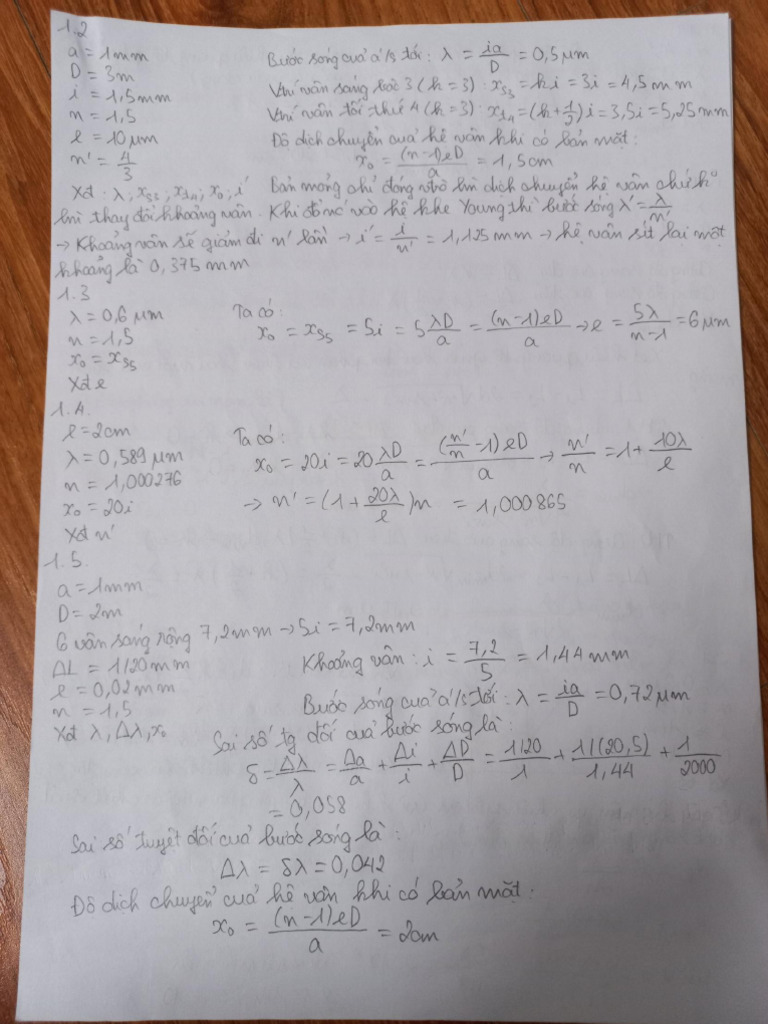 1.2
a = 1mm
D = 3m
i = 1,5mm
n = 1,5
e = 10 μm
n' = 4/3
Xđ: λ, xs3, xt4, x0, i'
Bước sóng của a/s tới: λ = ia/D = 0,5 μm
Vị trí vân sáng bậc 3 (k = 3): xs3 = ki = 3i = 4,5 mm
Vị trí vân tối thứ 4 (k = 3): xt4 = (k + 1/2)i = 3,5i = 5,25 mm
Độ dịch chuyển của hệ vân khi có bản mặt:
x0 = (n-1)eD/a = 1,5cm
Bản mỏng chỉ đóng vtrò làm dịch chuyển hệ vân chứ k°
làm thay đổi khoảng vân. Khi đổ nc vào hệ khe Young thì bước sóng λ' = λ/n'
→ Khoảng vân sẽ giảm đi n' lần → i' = i/n' = 1,125 mm → hệ vân sít lại một
khoảng là 0,375 mm
1.3
λ = 0,6 μm
n = 1,5
x0 = xs5
Xđ e
Ta có:
x0 = xs5 = 5i = 5 λD/a = (n-1)eD/a → e = 5λ/(n-1) = 6 μm
1.4.
e = 2cm
λ = 0,589 μm
n = 1,000276
x0 = 20i
Xđ n'
Ta có:
x0 = 20i = 20 λD/a = (n'/n - 1)eD/a → n'/n = 1 + 10λ/e
→ n' = (1 + 20λ/e)n = 1,000865
1.5.
a = 1mm
D = 2m
6 vân sáng rộng 7,2mm → 5i = 7,2mm
ΔL = 1/20 mm
e = 0,02 mm
n = 1,5
Xđ λ, Δλ, x0
Khoảng vân: i = 7,2/5 = 1,44 mm
Bước sóng của a/s tới: λ = ia/D = 0,72 μm
Sai số tg đối của bước sóng là:
δ = Δλ/λ = Δa/a + Δi/i + ΔD/D = (1/20)/1 + (1/(20,5))/1,44 + 1/2000
= 0,058
Sai số tuyệt đối của bước sóng là:
Δλ = δλ = 0,042
Độ dịch chuyển của hệ vân khi có bản mặt:
x0 = (n-1)eD/a = 2cm